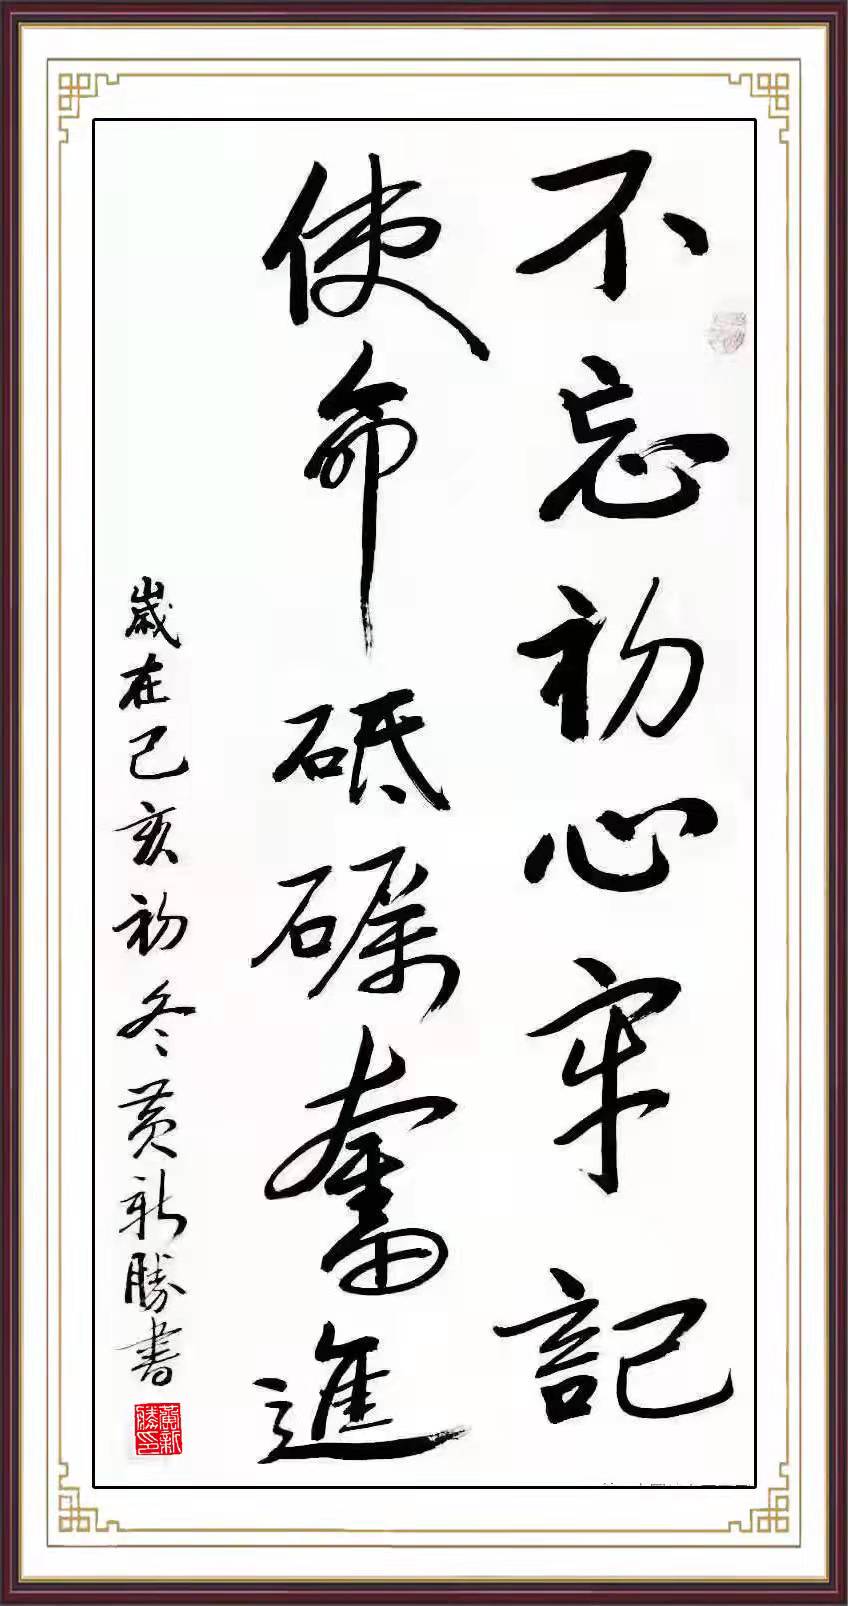 不忘初心牢記
使命砥礪奮進
歲在己亥初冬黃新勝書
黃新勝印